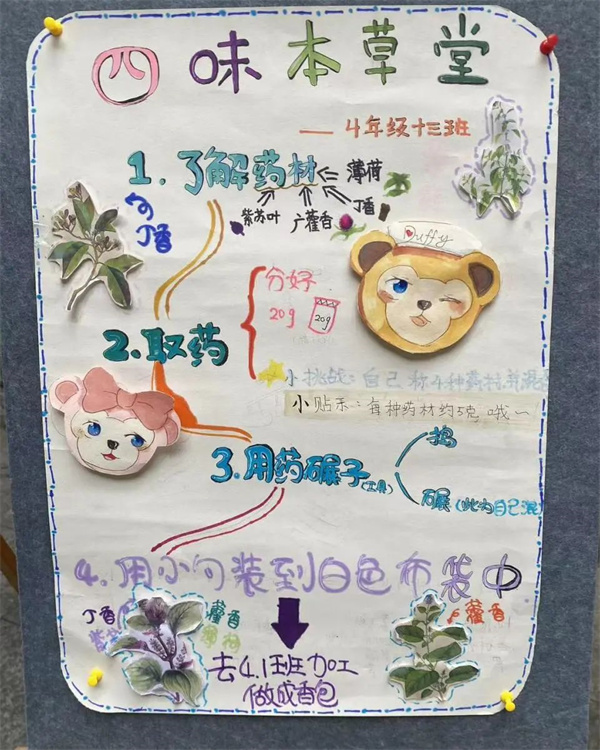 四味本草堂
—— 4年级十三班
1. 了解药材
薄荷
丁香
广藿香
紫苏叶
丁香
Duffy
2. 取药
分好
20g
20g
小挑战：自己称4种药材,并混
小贴示：每种药材约5克 哦～
3. 用药碾子(工具)
捣
碾
4. 用小勺装到白色布袋中
丁香
藿香
广藿香
去4.1班加工
做成香包